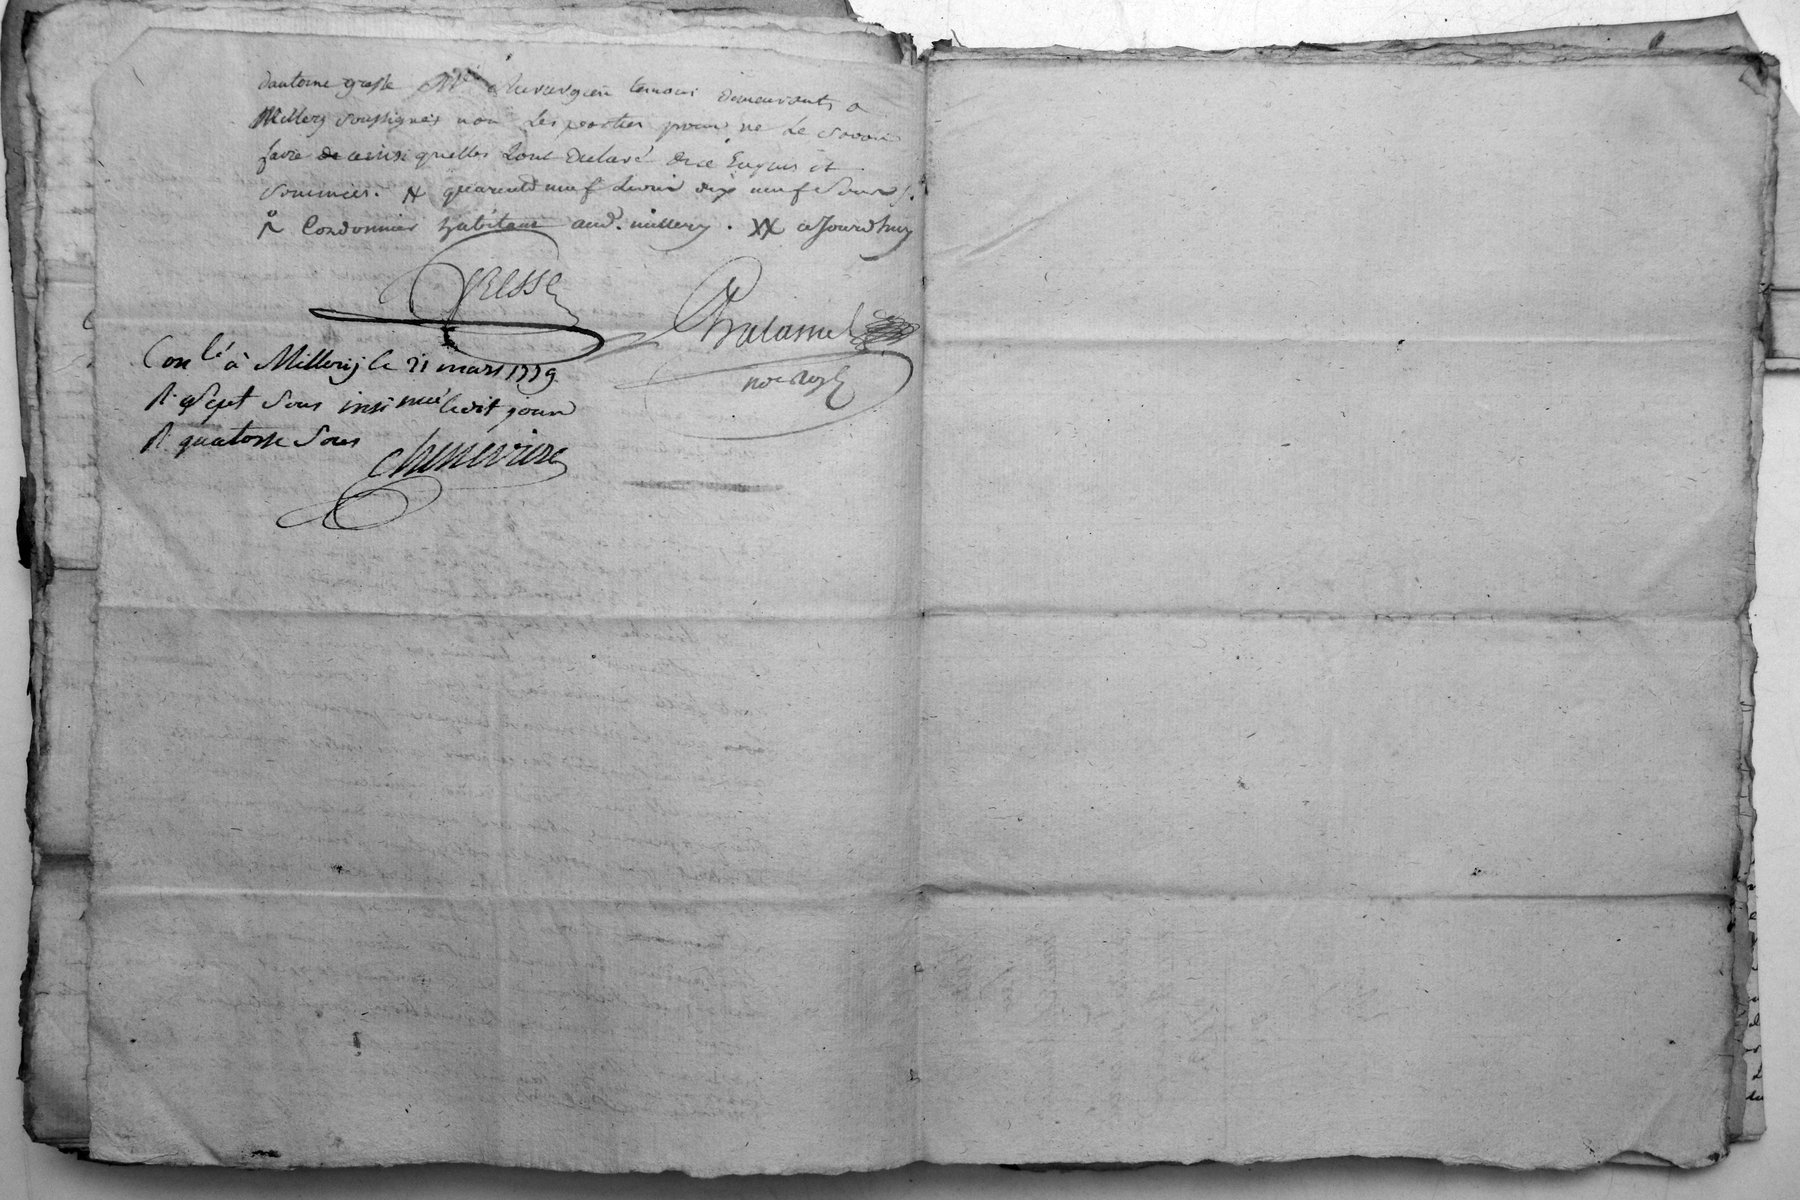 d'antoine gresse Me Chirurgien temoins demeurants a
Millery soussignés non les parties pour ne le savoir
faire de ainsi quelles l'ont declaré de ce Enquis et
sommées. quarente neuf livres dix neuf sous
Cordonnier habitant aud. millery. XX ajourdhuy
GRESSE
Chalamel
noe Royl
Conlé à Millery le 21 mars 1779
R. sept Sous insinué ledit jour
R. quatorse Sous
cheneviere